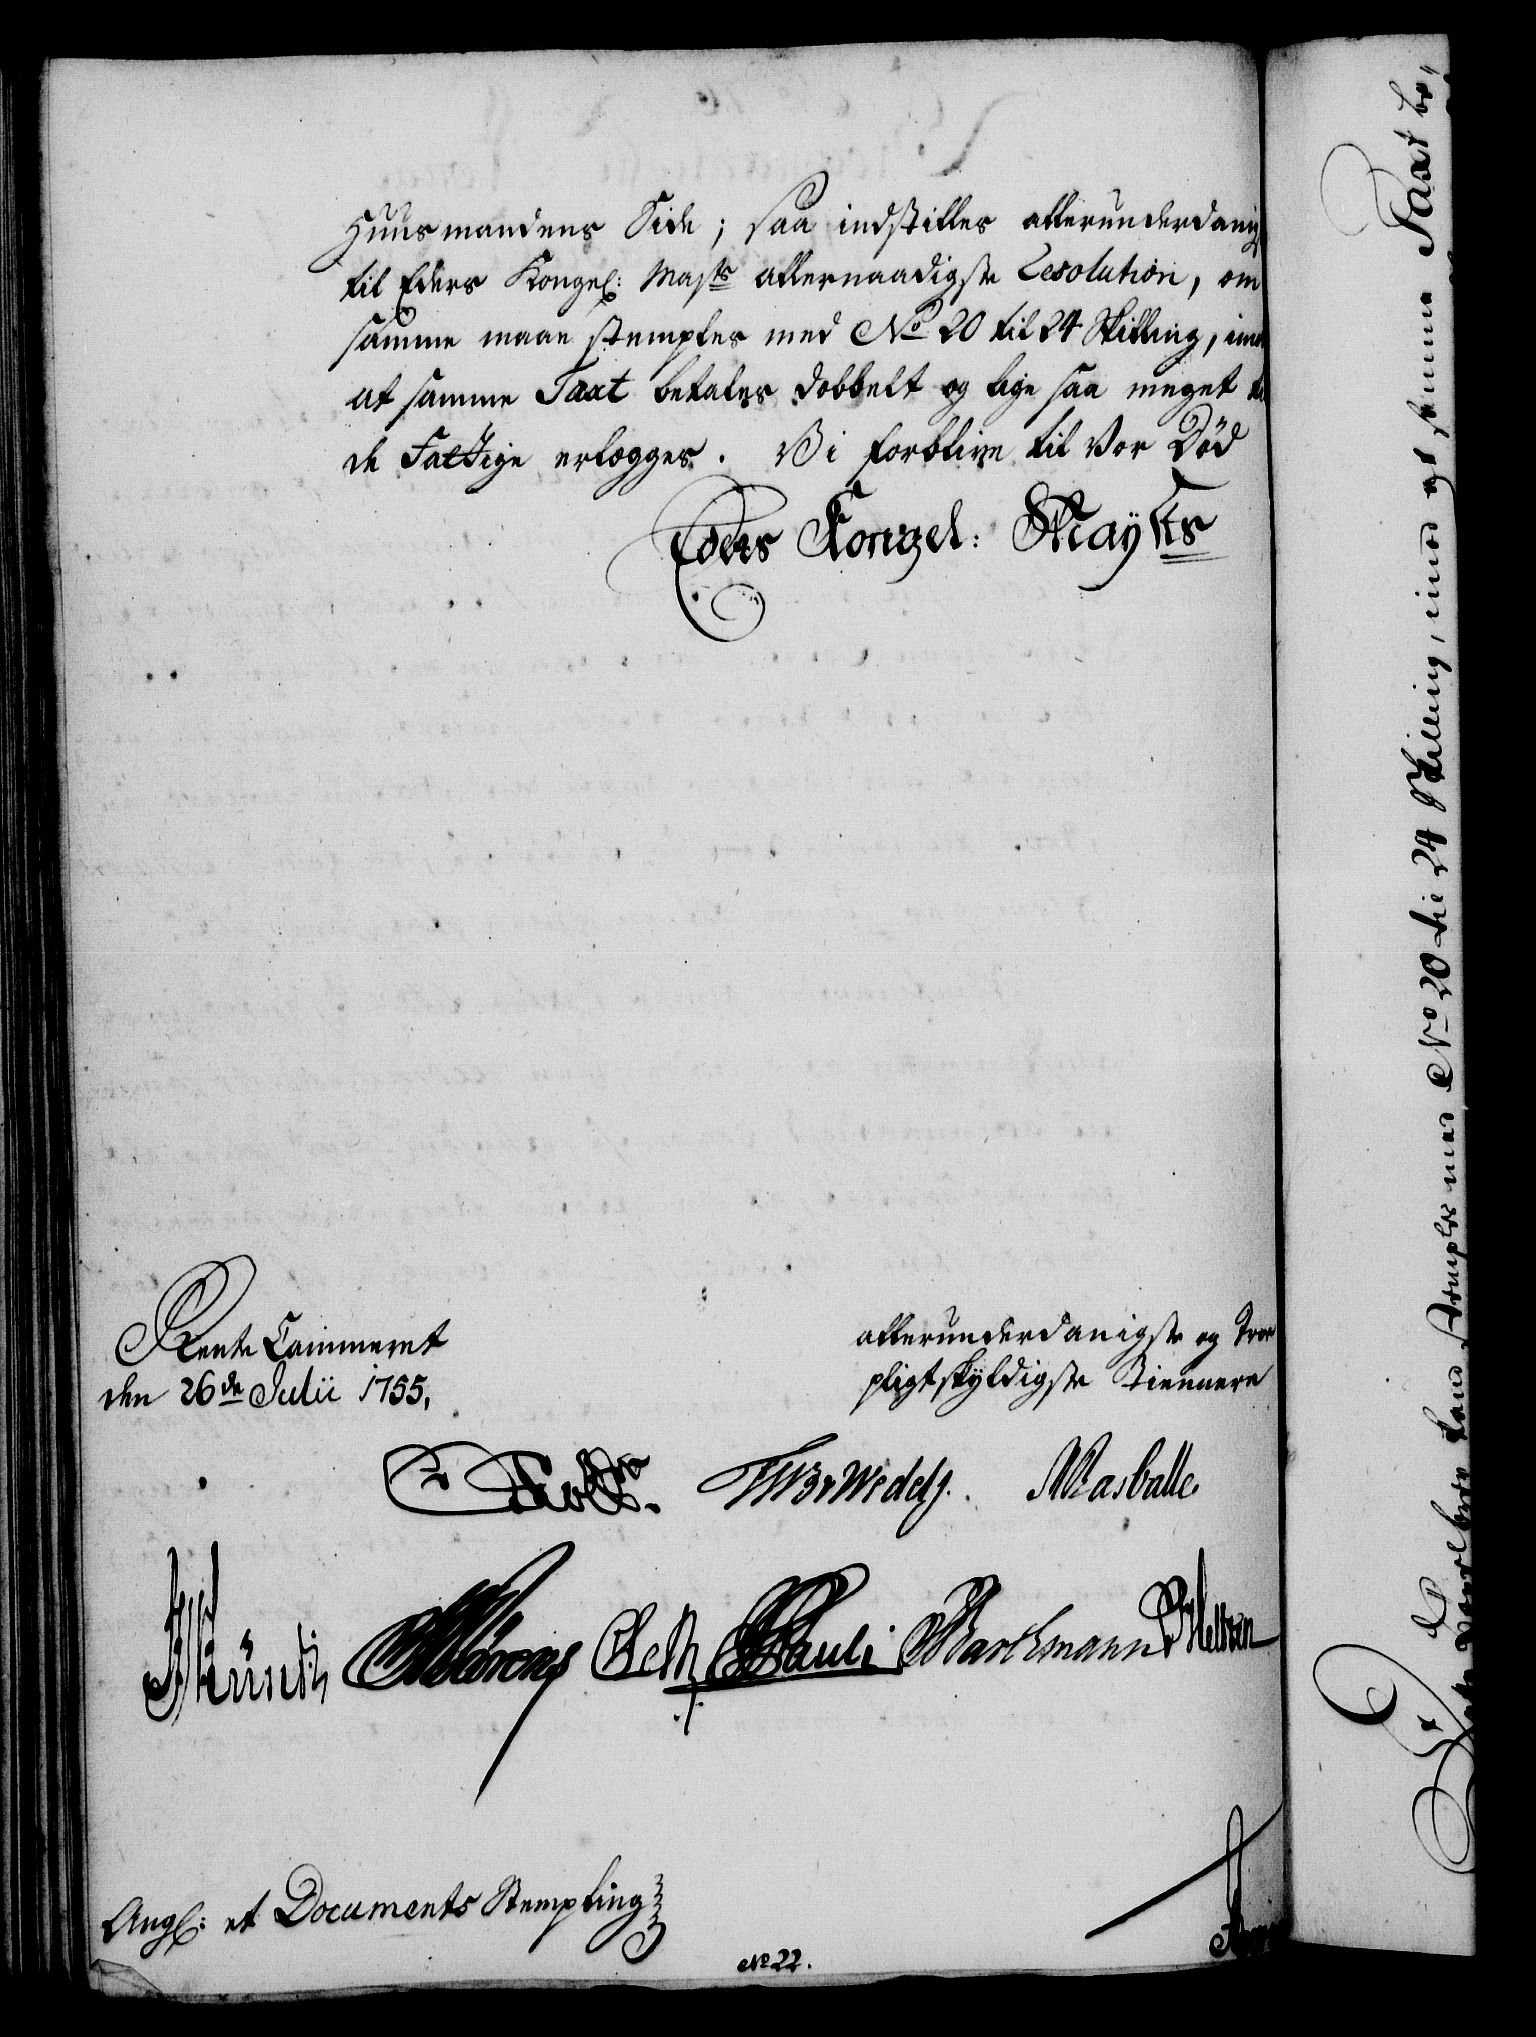 Huusmandens Side; saa indstilles allerunderdanigst
til Eders Kongel: Mayts allernaadigste Resolution, om
samme maae stemples med No 20 til 24 Skilling, imod
at samme Taxt betales dobbelt og lige saa meget til
de Fattige erlægges. Vi forblive til Vor Død
Eders Kongel: Mayts
Rente Cammeret
den 26de Julii 1755,
allerunderdanigste og Troe
pligtskyldigste Tiennere
Holst. Wedely. Masballe
Pauli Barthmann
Angl: et Documents Stempling
No 22.
Taxt be-
Land, Stemples med No 20 til 24 Skilling, imod at samme